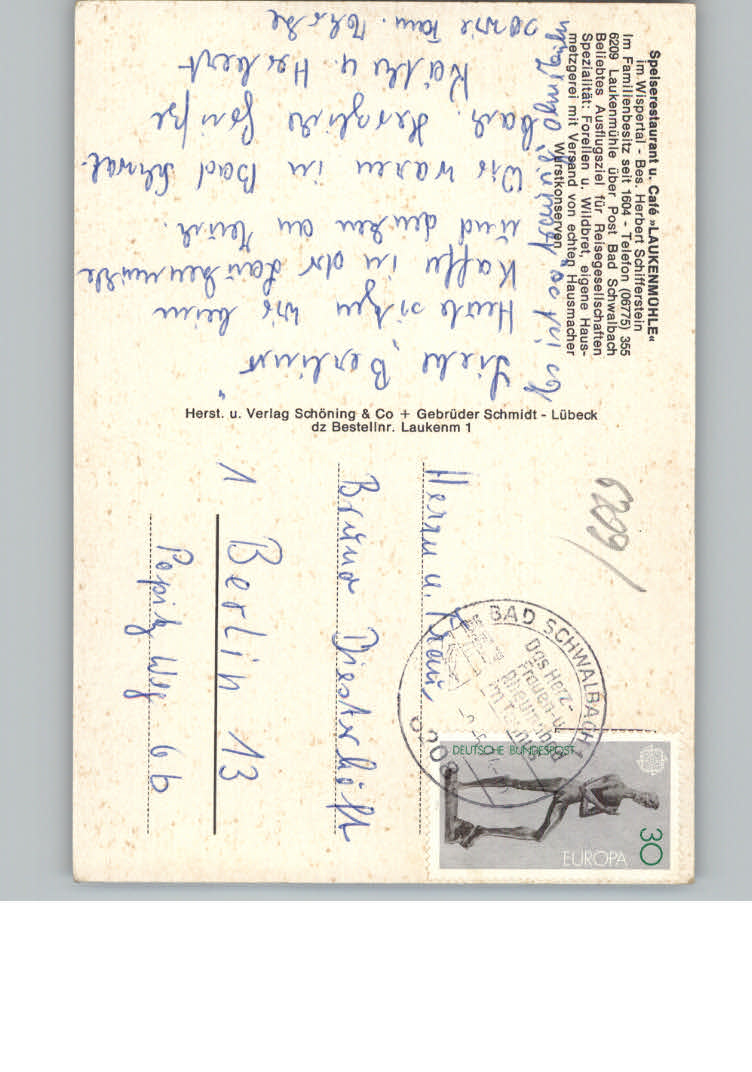 Speiserestaurant u. Café »LAUKENMÜHLE«
im Wispertal - Bes. Herbert Schifferstein
Im Familienbesitz seit 1604 - Telefon (06775) 355
6209 Laukenmühle über Post Bad Schwalbach
Beliebtes Ausflugsziel für Reisegesellschaften
Spezialität: Forellen u. Wildbret, eigene Haus-
metzgerei mit Versand von echten Hausmacher
Wurstkonserven
Liebe „Berliner"
Heute sitzen wir beim
Kaffee in der Laukenmühle
und denken an Euch.
Wir waren in Bad Schwal-
bach. Herzliche Grüße
Käthe u. Herbert
sowie Fam.
Herst. u. Verlag Schöning & Co + Gebrüder Schmidt - Lübeck
dz Bestellnr. Laukenm 1
6209/
BAD SCHWALBACH 1
Das Herz-
Frauen-u.
Rheumabad
im Taunus
6208
DEUTSCHE BUNDESPOST
EUROPA
30
Herrn u. Frau
Bruno Diesterhöft
1 Berlin 13
Popitz Weg 6b